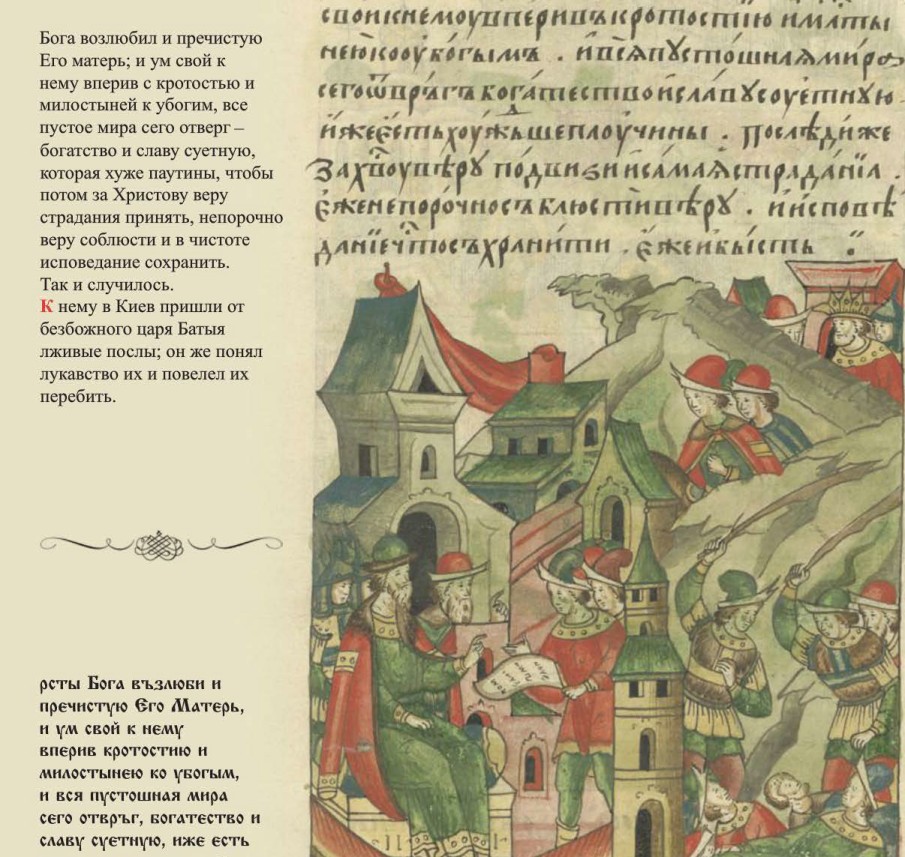 Бога возлюбил и пречистую
Его матерь; и ум свой к
нему вперив с кротостью и
милостыней к убогим, все
пустое мира сего отверг –
богатство и славу суетную,
которая хуже паутины, чтобы
потом за Христову веру
страдания принять, непорочно
веру соблюсти и в чистоте
исповедание сохранить.
Так и случилось.
К нему в Киев пришли от
безбожного царя Батыя
лживые послы; он же понял
лукавство их и повелел их
перебить.
рсты Бога възлюби и
пречистую Его Матерь,
и ум свой к нему
вперив кротостию и
милостынею ко убогым,
и вся пустошная мира
сего отвръг, богатество и
славу суетную, иже есть
свои кнемоу вперивъ кротостїю имлⷭ҇ты
нею кооубогымъ . ивсѧпустошнаѧ мира
сего ѿвръгъ богатество иславꙋ соуетнꙋю
иже есть хоужьше паоучины . послѣди же
Захв̑оу вѣрꙋ подвиги исамаѧ страданїа .
еже непорочно съблюсти вѣрꙋ . иисповѣ
данїе чт̑о съхранити . еже ибысть